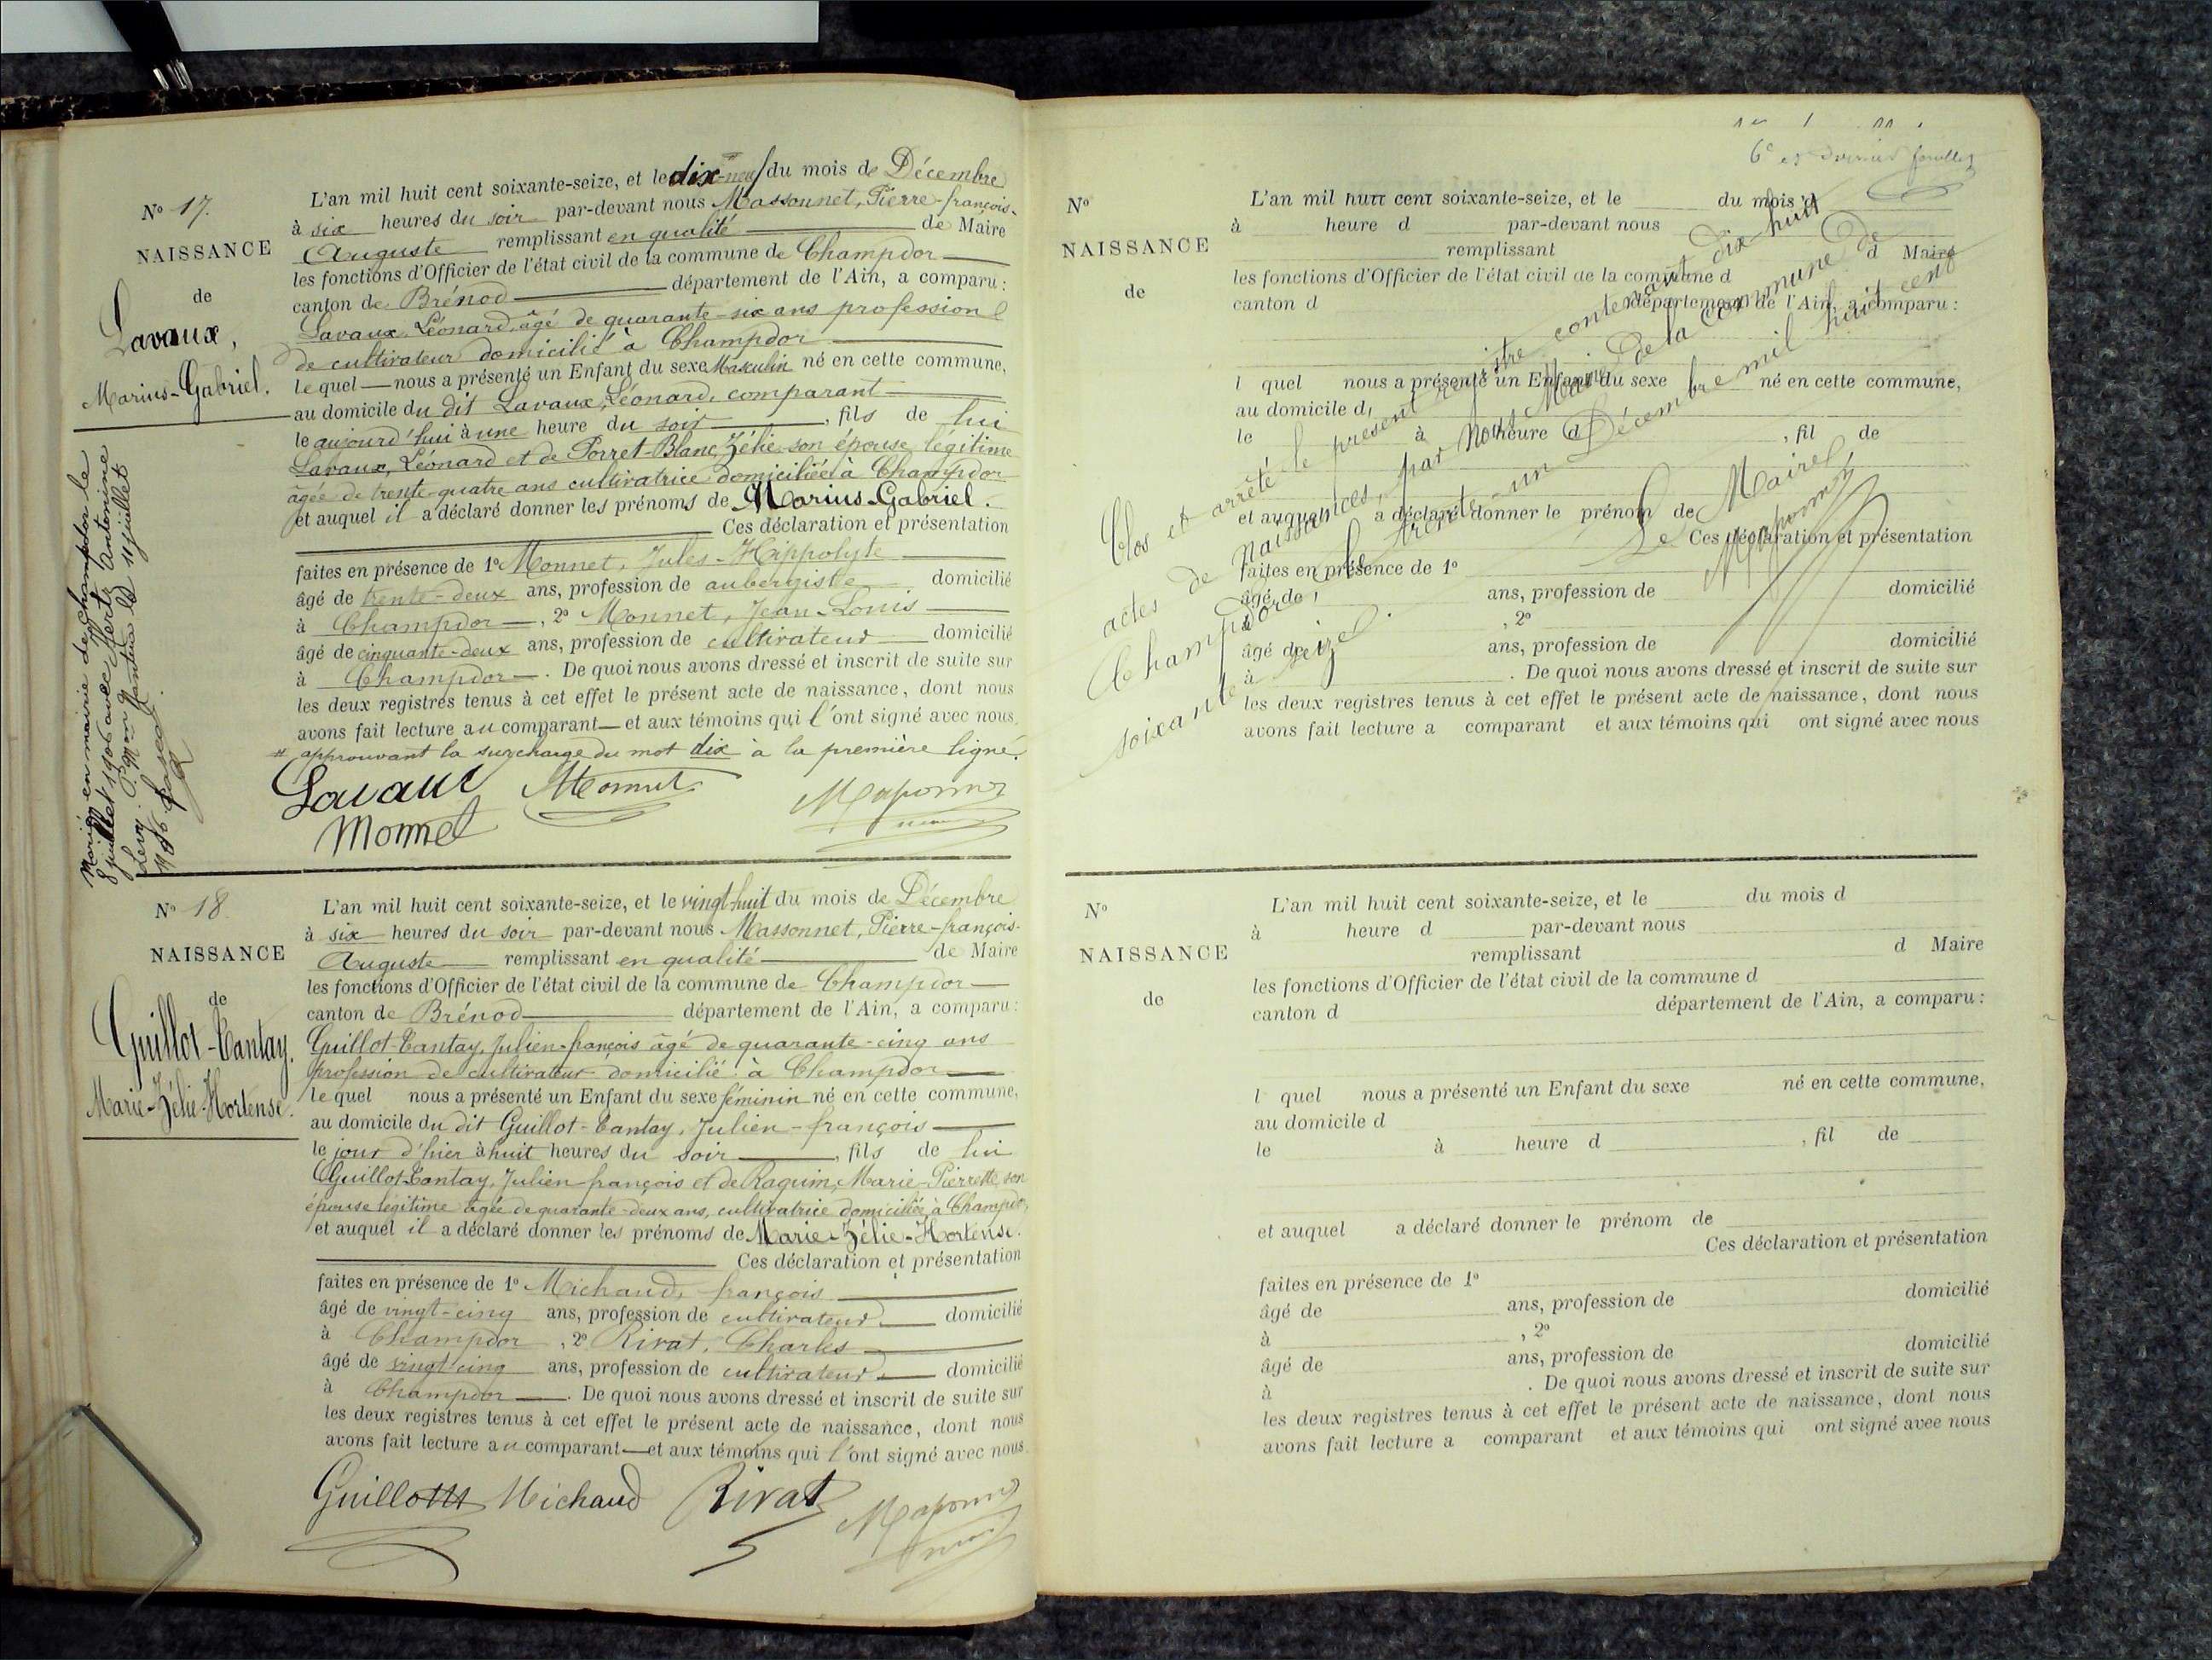 N° 17.
NAISSANCE
de
Lavaux,
Marius-Gabriel.
Marié en mairie de Champdor le
8 juillet 1906 avec Berte Antonine
Levy.
L'an mil huit cent soixante-seize, et le dix-neuf du mois de Décembre
à six heures du soir par-devant nous Massonnet, Pierre-françois-
Auguste remplissant en qualité de Maire
les fonctions d'Officier de l'état civil de la commune de Champdor
canton de Brénod département de l'Ain, a comparu :
Lavaux, Léonard, âgé de quarante-six ans profession
de cultivateur domicilié à Champdor
le quel nous a présenté un Enfant du sexe Masculin né en cette commune,
au domicile du dit Lavaux, Léonard, comparant
le aujourd'hui à une heure du soir, fils de lui
Lavaux, Léonard et de Porret-Blanc, Zélie son épouse légitime
âgée de trente-quatre ans cultivatrice domiciliée à Champdor
et auquel il a déclaré donner les prénoms de Marius-Gabriel.
Ces déclaration et présentation
faites en présence de 1° Monnet, Jules-Hippolyte
âgé de trente-deux ans, profession de aubergiste domicilié
à Champdor, 2° Monnet, Jean-Louis
âgé de cinquante-deux ans, profession de cultivateur domicilié
à Champdor. De quoi nous avons dressé et inscrit de suite sur
les deux registres tenus à cet effet le présent acte de naissance, dont nous
avons fait lecture au comparant et aux témoins qui l'ont signé avec nous.
# approuvant la surcharge du mot dix à la première ligne.
Lavaux Monnet
Monnet
N° 18.
NAISSANCE
de
Guillot-Cantay.
Marie-Zélie-Hortense.
L'an mil huit cent soixante-seize, et le vingt-huit du mois de Décembre
à six heures du soir par-devant nous Massonnet, Pierre-françois-
Auguste remplissant en qualité de Maire
les fonctions d'Officier de l'état civil de la commune de Champdor
canton de Brénod département de l'Ain, a comparu :
Guillot-Cantay, Julien-françois âgé de quarante-cinq ans
profession de cultivateur domicilié à Champdor
le quel nous a présenté un Enfant du sexe féminin né en cette commune,
au domicile du dit Guillot-Cantay, Julien-françois
le jour d'hier à huit heures du soir, fils de lui
Guillot-Cantay, Julien-françois et de Raquin, Marie-Pierrette, son
épouse légitime âgée de quarante-deux ans, cultivatrice domiciliée à Champdor,
et auquel il a déclaré donner les prénoms de Marie-Zélie-Hortense.
Ces déclaration et présentation
faites en présence de 1° Michaud, françois
âgé de vingt-cinq ans, profession de cultivateur domicilié
à Champdor, 2° Rivat, Charles
âgé de vingt-cinq ans, profession de cultivateur domicilié
à Champdor. De quoi nous avons dressé et inscrit de suite sur
les deux registres tenus à cet effet le présent acte de naissance, dont nous
avons fait lecture au comparant et aux témoins qui l'ont signé avec nous.
Guillot Michaud Rivat
6e et dernier feuillet
N°
NAISSANCE
de
L'an mil huit cent soixante-seize, et le du mois d
à heure d par-devant nous
remplissant d Maire
les fonctions d'Officier de l'état civil de la commune d
canton d département de l'Ain, a comparu :
l quel nous a présenté un Enfant du sexe né en cette commune,
au domicile d
le à heure d , fil de
et auquel a déclaré donner le prénom de
Ces déclaration et présentation
faites en présence de 1°
âgé de ans, profession de domicilié
à , 2°
âgé de ans, profession de domicilié
à . De quoi nous avons dressé et inscrit de suite sur
les deux registres tenus à cet effet le présent acte de naissance, dont nous
avons fait lecture a comparant et aux témoins qui ont signé avec nous
Clos et arrêté le présent registre contenant dix-huit
actes de naissances, par Nous Maire de la commune de
Champdor, le trente-un Décembre mil huit cent
soixante seize.
Le Maire
N°
NAISSANCE
de
L'an mil huit cent soixante-seize, et le du mois d
à heure d par-devant nous
remplissant d Maire
les fonctions d'Officier de l'état civil de la commune d
canton d département de l'Ain, a comparu :
l quel nous a présenté un Enfant du sexe né en cette commune,
au domicile d
le à heure d , fil de
et auquel a déclaré donner le prénom de
Ces déclaration et présentation
faites en présence de 1°
âgé de ans, profession de domicilié
à , 2°
âgé de ans, profession de domicilié
à . De quoi nous avons dressé et inscrit de suite sur
les deux registres tenus à cet effet le présent acte de naissance, dont nous
avons fait lecture a comparant et aux témoins qui ont signé avec nous